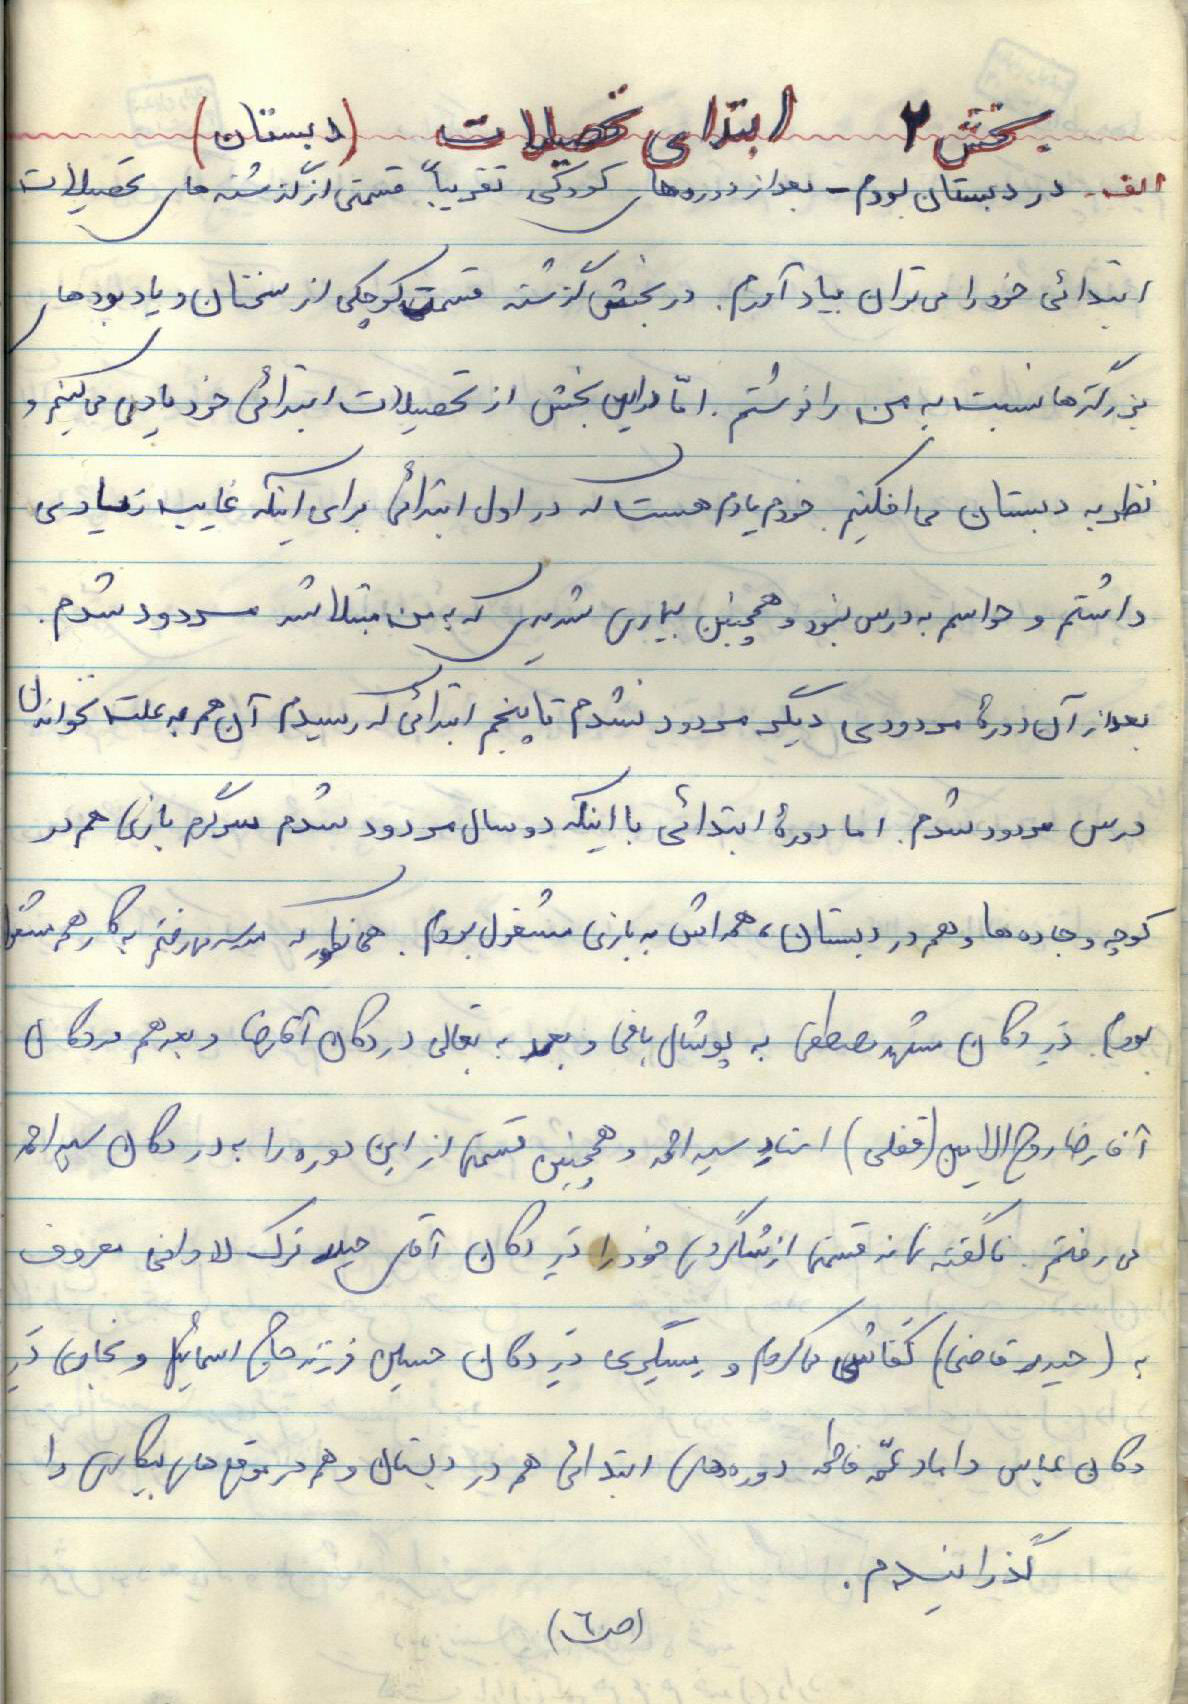 بخش ۲ ابتدای تحصیلات (دبستان)
الف - در دبستان بودم - بعد از دوره‌های کودکی تقریباً قسمتی از گذشته‌های تحصیلات
ابتدائی خود را می‌توان بیاد آورم. در بخش گذشته قسمت کوچکی از سخنان و یادبودهای
بزرگترها نسبت به من را نوشتم. امّا در این بخش از تحصیلات ابتدائی خود یادی می‌کنیم و
نظر به دبستان می‌افکنیم. خودم یادم هست که در اول ابتدائی برای اینکه غایب زیادی
داشتم و حواسم به درس نبود و همچنین بیماری شدیدی که به من مبتلا شد مردود شدم.
بعد از آن دورهٔ مردودی دیگر مردود نشدم تا پنجم ابتدائی که رسیدم آن هم به علت نخواندن
درس مردود شدم. اما دورهٔ ابتدائی با اینکه دو سال مردود شدم سرگرم بازی هم در
کوچه و جاده‌ها و هم در دبستان، همه‌اش به بازی مشغول بودم. همانطور که مدرسه میرفتم به کار هم مشغول
بودم. در دکان مشهد مصطفی به پوشال بافی و بعد به بقالی در دکان آقارضا و بعد هم در دکان
آقارضا روح الامین (قفلی) استاد سید احمد و همچنین قسمتی از این دوره را به در دکان سید احمد
می‌رفتم. ناگفته نماند قسمتی از شاگردی خود را در دکان آقای حیدر ترک لادانی معروف
به (حیدر قاضی) کفّاشی می‌کردم و مسگری در دکان حسین فرزند حاج اسمائیل و نجاری در
دکان عباس داماد عمّه فاطمه دوره‌های ابتدائی هم در دبستان و هم در موقع‌های بیکاری را
گذرانیدم.
(ص ٦)